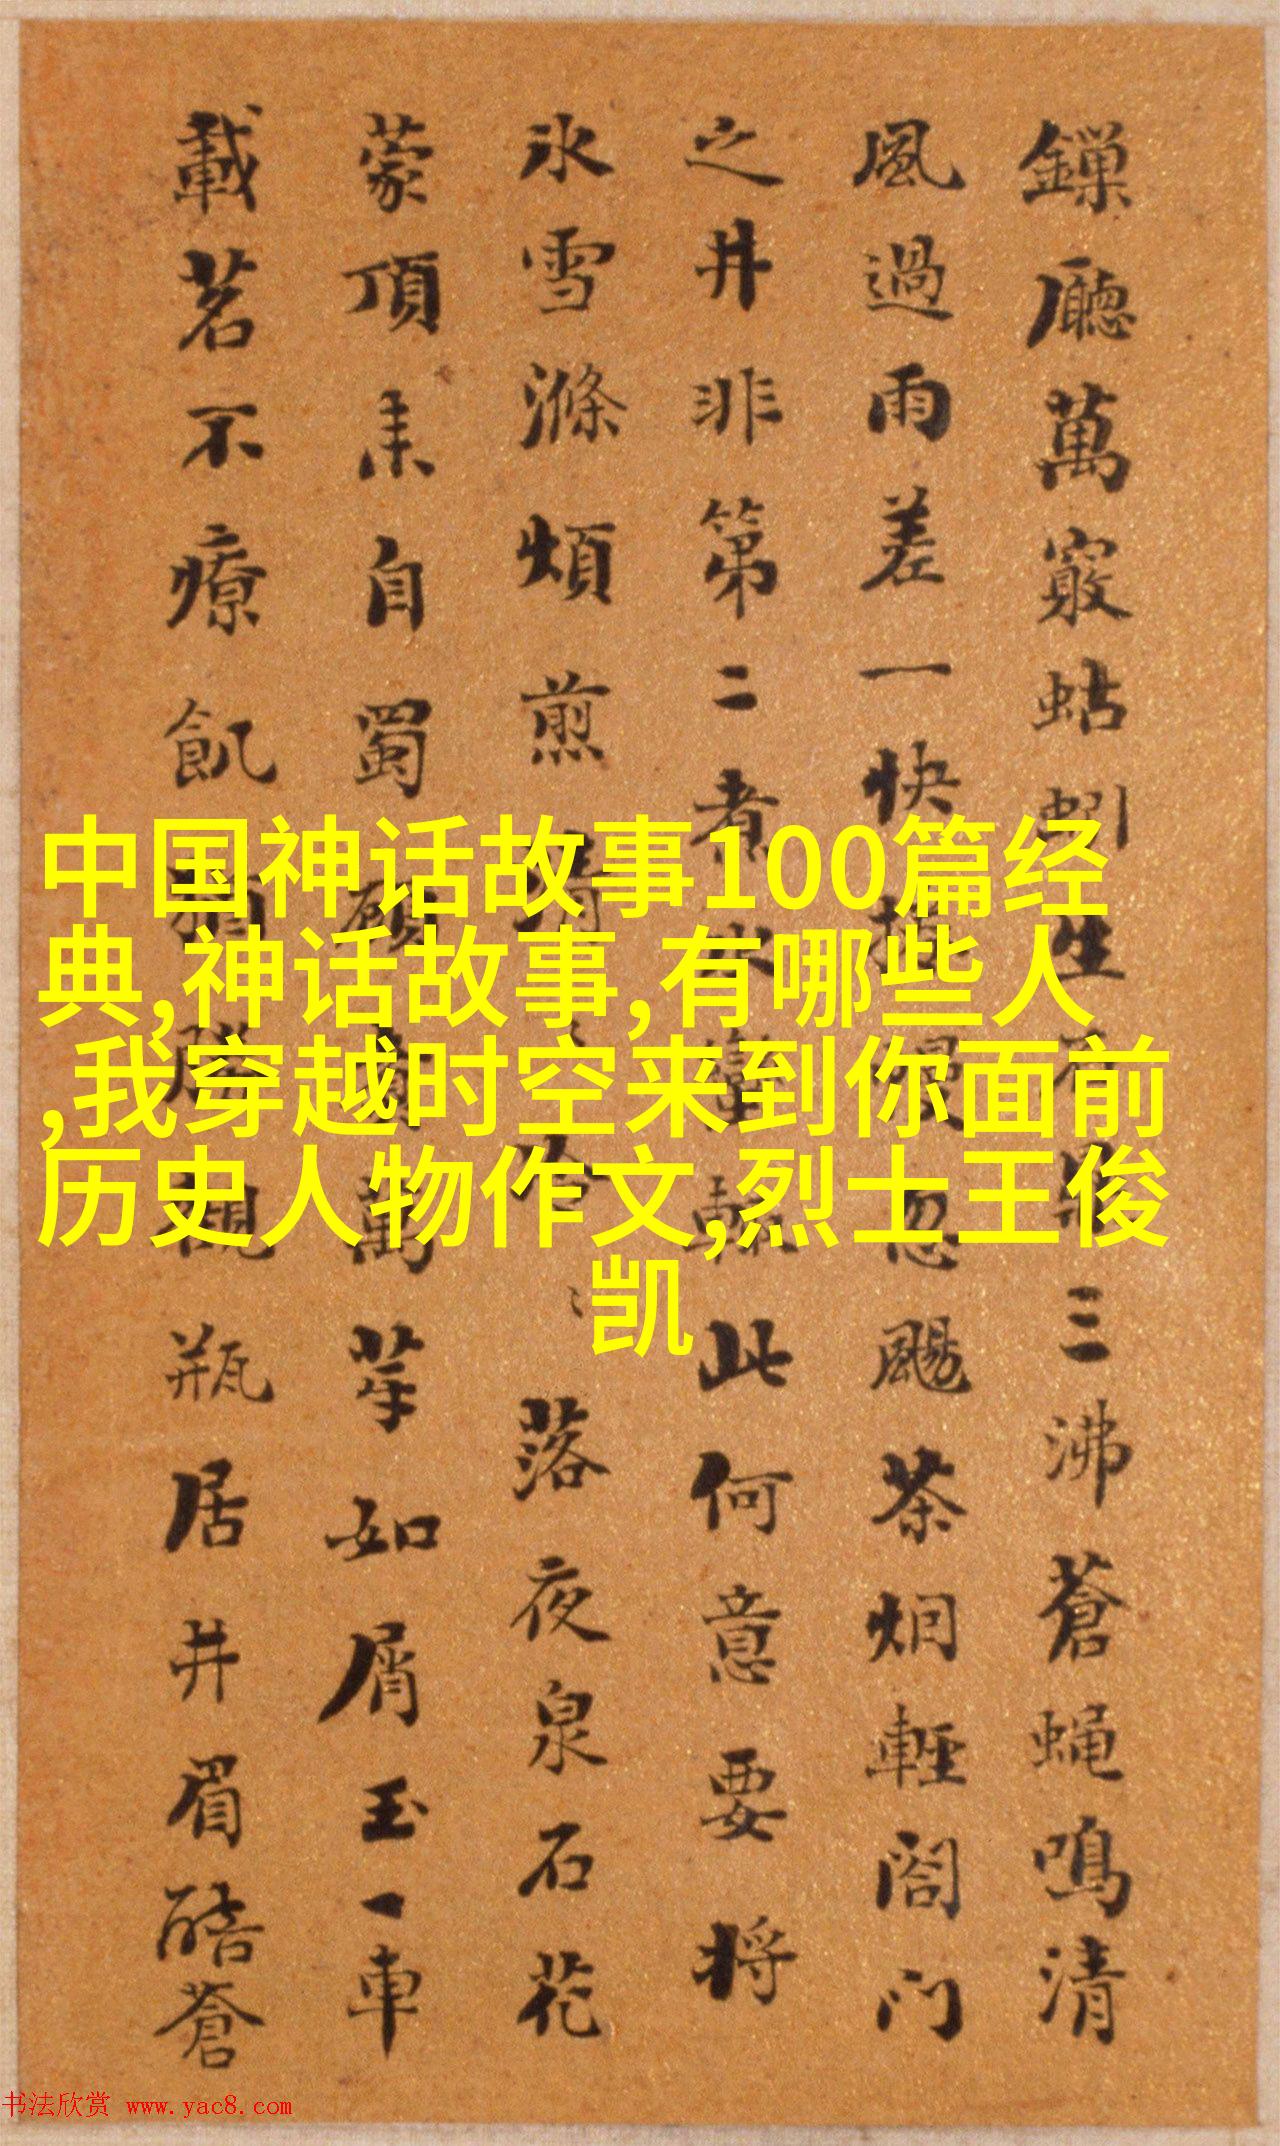 廳萬竅蛄蚓生三沸蒼蝇鳴清
風過雨差一快忽颺茶烟輕閤門
之井非第二煮水此何意要将
氷雪滌煩煎落夜泉石花
蒙頂来自蜀萬芽如屑玉一車
載茗不療飢觀瓶居井眉酷蒼
中国神话故事100篇经
典,神话故事,有哪些人
,我穿越时空来到你面前
历史人物作文,烈士王俊
凯
书法欣赏 www.yac8.com